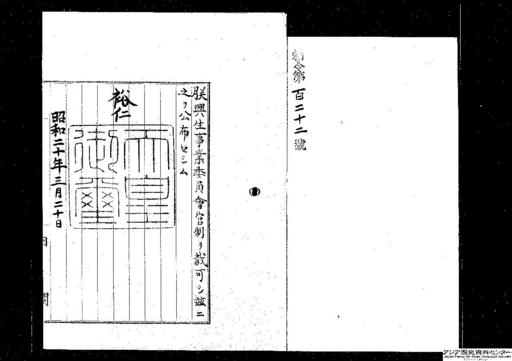 勅令第百二十二號
朕興生事業委員會官制ヲ裁可シ茲ニ
之ヲ公布セシム
裕仁
天皇御璽
昭和二十年三月二十日
内閣
アジア歴史資料センター
Japan Center for Asian Historical Records